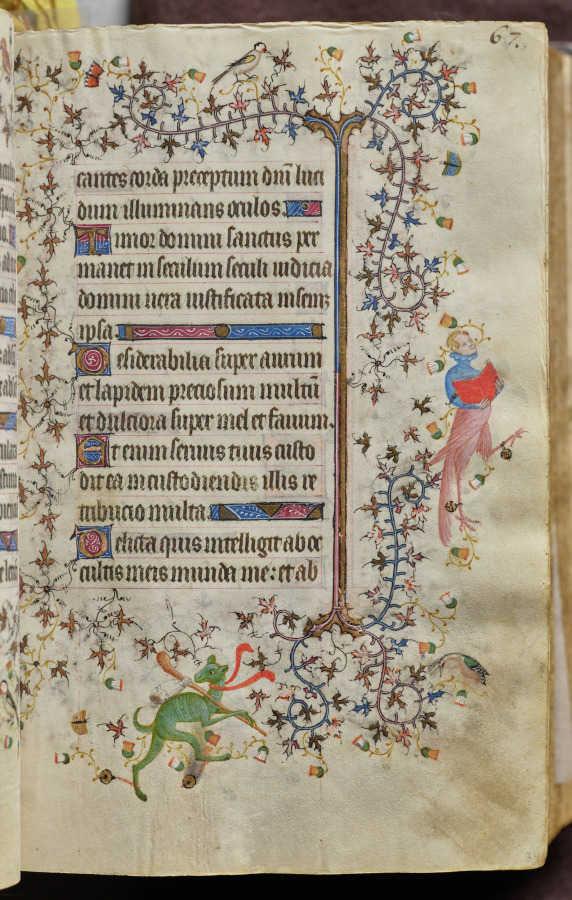 67.
cantes corda preceptum dn̄i luci
dum illuminans oculos.
Timor domini sanctus per
manet in seculum seculi iudicia
domini uera iustificata in semꝫ
ipsa
Desiderabilia super aurum
et lapidem preciosum multū
et dulciora super mel et fauum.
Etenim seruus tuus custo
dit ea in custodiendis illis re
tribucio multa
Delicta quis intelligit ab oc
cultis meis munda me: et ab